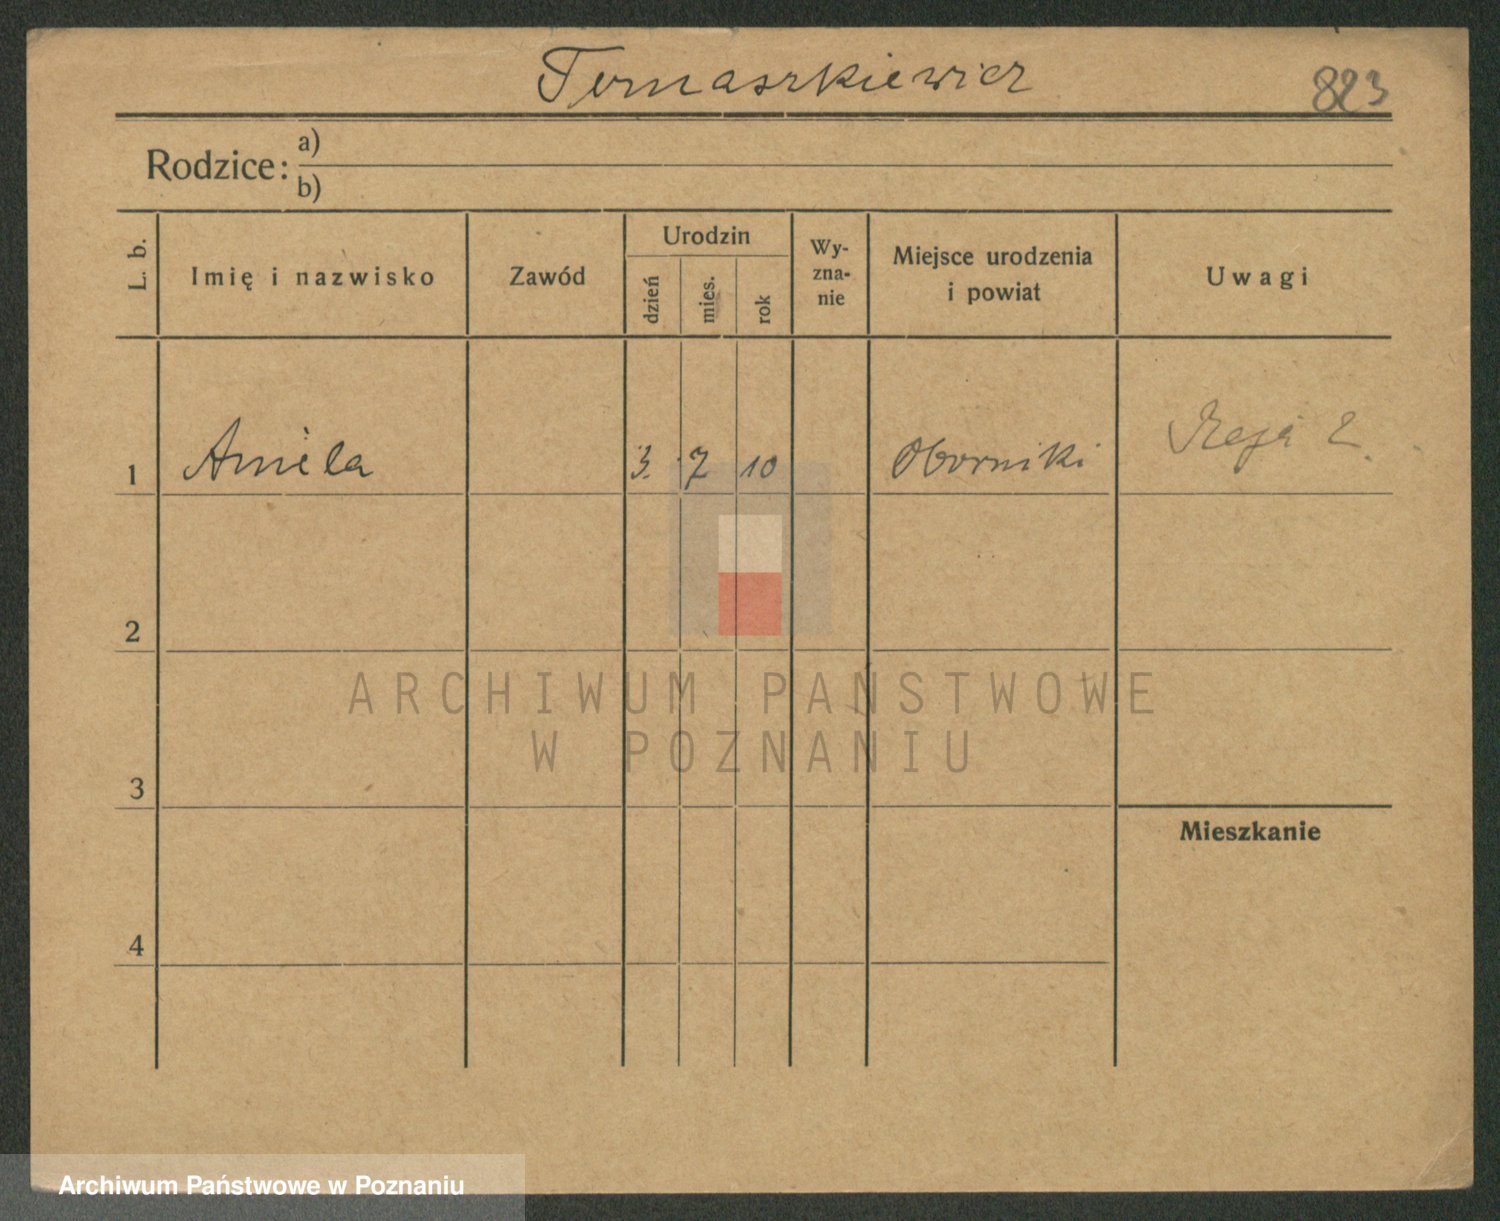 Tomaszkiewicz 823
Rodzice: a)
b)
L. b. Imię i nazwisko Zawód Urodzin dzień mies. rok Wy-zna-nie Miejsce urodzenia i powiat Uwagi
1 Aniela 3. 7 10 Oborniki Reja 2.
2
3
Mieszkanie
4
ARCHIWUM PAŃSTWOWE
W POZNANIU
Archiwum Państwowe w Poznaniu